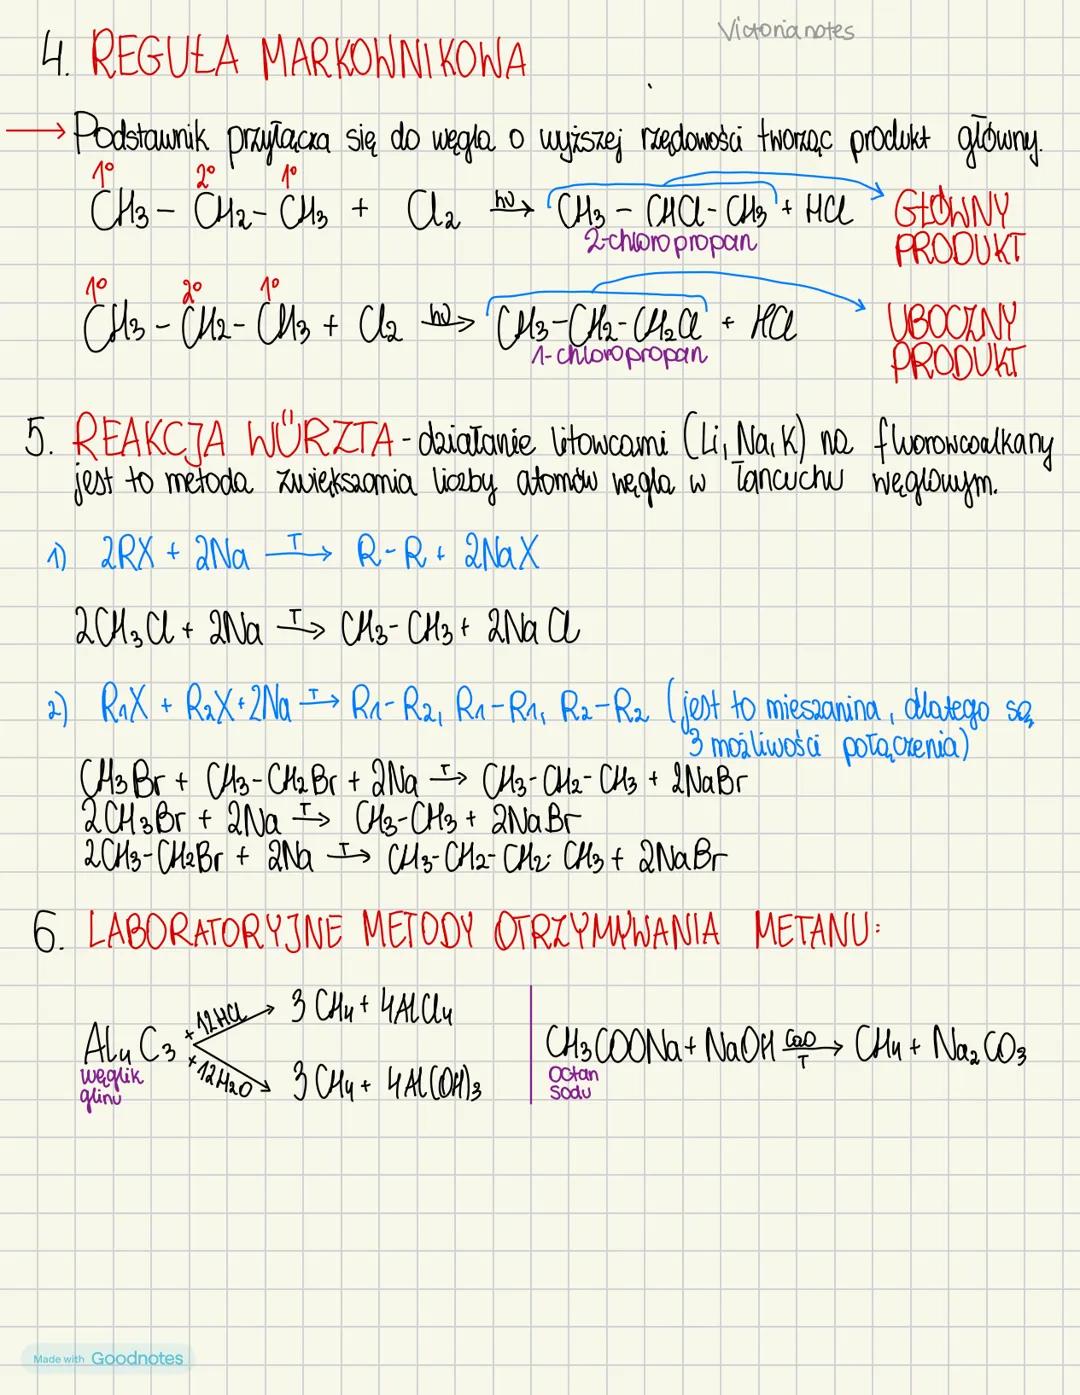 Victoria notes
4. REGUŁA MARKOWNIKOWA
→ Podstawnik przyłącza się do węgla o wyższej rzędowości tworząc produkt główny.
1° 2° 1°
CH3 - CH2 - CH3 + Cl2 hν→ CH3 - CHCl - CH3 + HCl → GŁÓWNY PRODUKT
2-chloropropan
1° 2° 1°
CH3 - CH2 - CH3 + Cl2 hν→ CH3 - CH2 - CH2Cl + HCl → UBOCZNY PRODUKT
1-chloropropan
5. REAKCJA WÜRZTA - działanie litowcami (Li, Na, K) na fluorowcoalkany
jest to metoda zwiększania liczby atomów węgla w łańcuchu węglowym.
1) 2RX + 2Na T→ R-R + 2NaX
2CH3Cl + 2Na T→ CH3-CH3 + 2NaCl
2) R1X + R2X + 2Na T→ R1-R2, R1-R1, R2-R2 (jest to mieszanina, dlatego są
3 możliwości połączenia)
CH3Br + CH3-CH2Br + 2Na T→ CH3-CH2-CH3 + 2NaBr
2CH3Br + 2Na T→ CH3-CH3 + 2NaBr
2CH3-CH2Br + 2Na T→ CH3-CH2-CH2-CH3 + 2NaBr
6. LABORATORYJNE METODY OTRZYMYWANIA METANU:
Al4C3
węglik
glinu
+12HCl → 3CH4 + 4AlCl4
+12H2O → 3CH4 + 4Al(OH)3
CH3COONa + NaOH CaO T→ CH4 + Na2CO3
octan
sodu
Made with Goodnotes